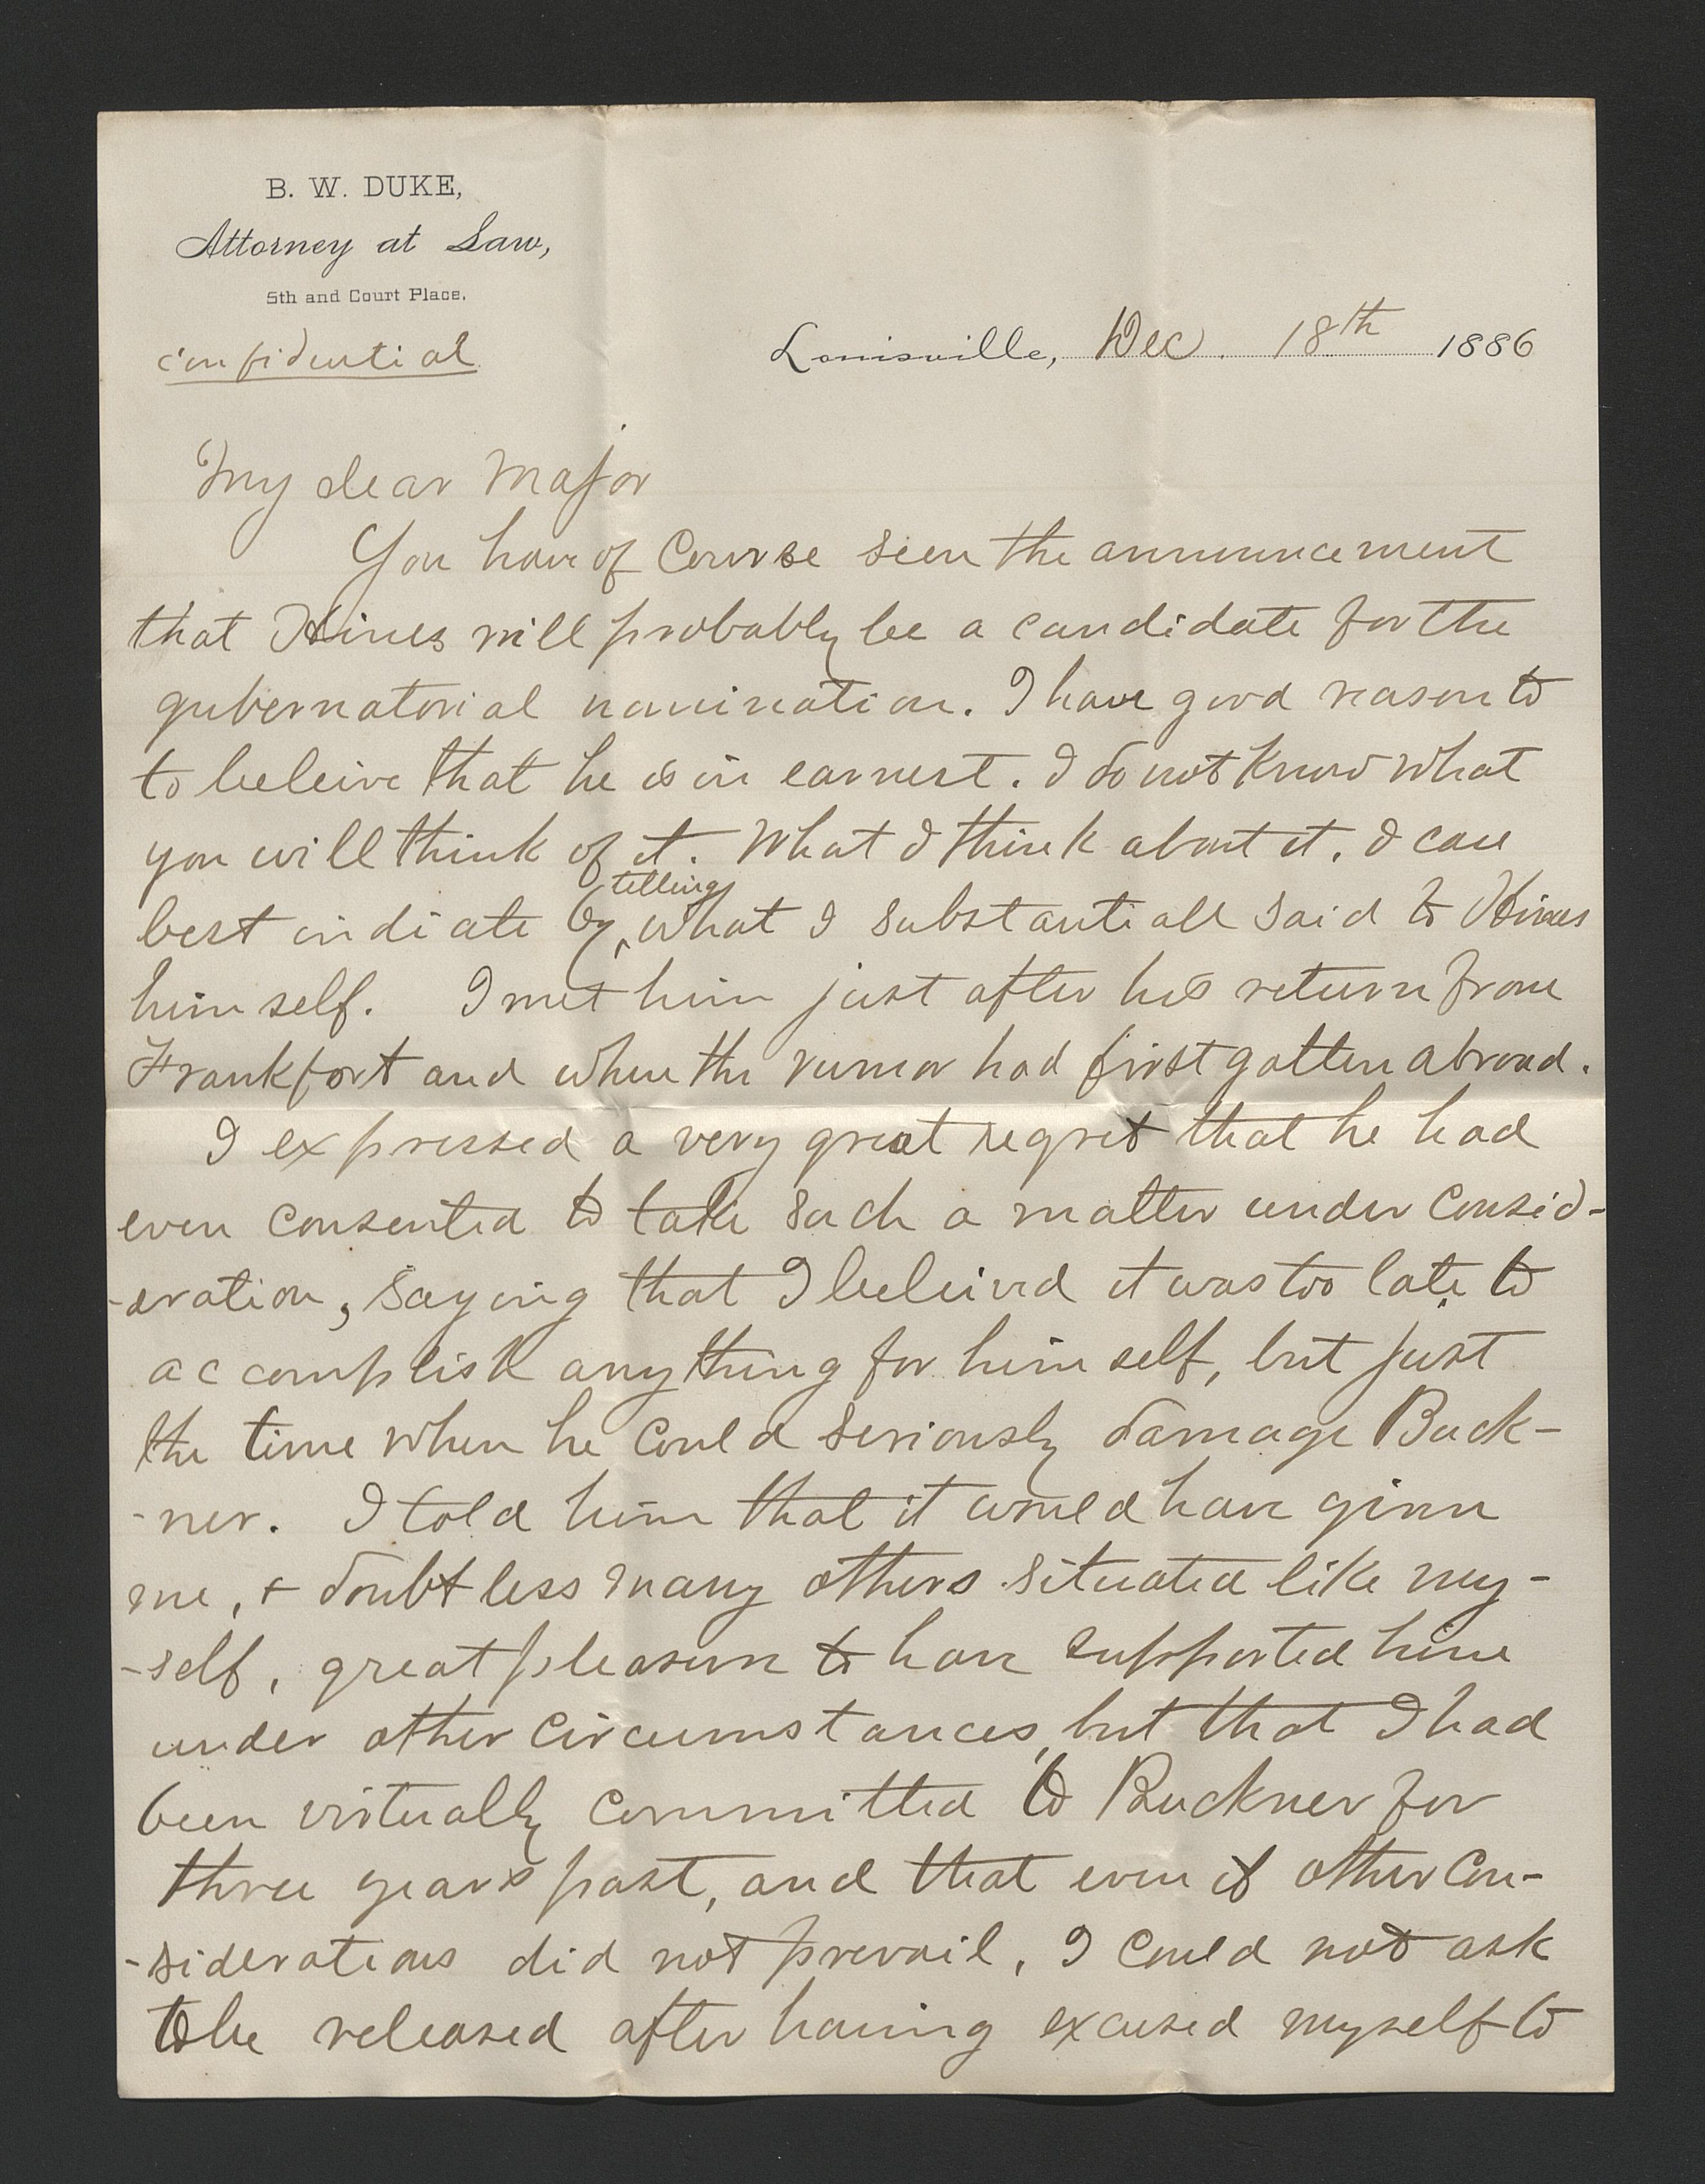 B. W. DUKE,
Attorney at Law,
5th and Court Place.
Confidential
Louisville, Dec. 18th 1886
My dear Major
You have of Course seen the announcement
that Hines will probably be a candidate for the
gubernatorial nomination. I have good reason to
to beleive that he is in earnest. I do not know what
you will think of it. What I think about it, I can
best indiate by telling what I substantiall said to Hines
himself. I met him just after his return from
Frankfort and when the rumor had first gotten abroad.
I expressed a very great regret that he had
even consented to take such a matter under consid-
-eration, saying that I beleived it was too late to
accomplish anything for himself, but just
the time when he could seriously damage Buck-
-ner. I told him that it would have given
me, & doubtless many others situated like my-
-self, great pleasure to have supported him
under other circumstances, but that I had
been virtually committed to Buckner for
three years past, and that even if other con-
-siderations did not prevail, I could not ask
to be released after having excused myself to